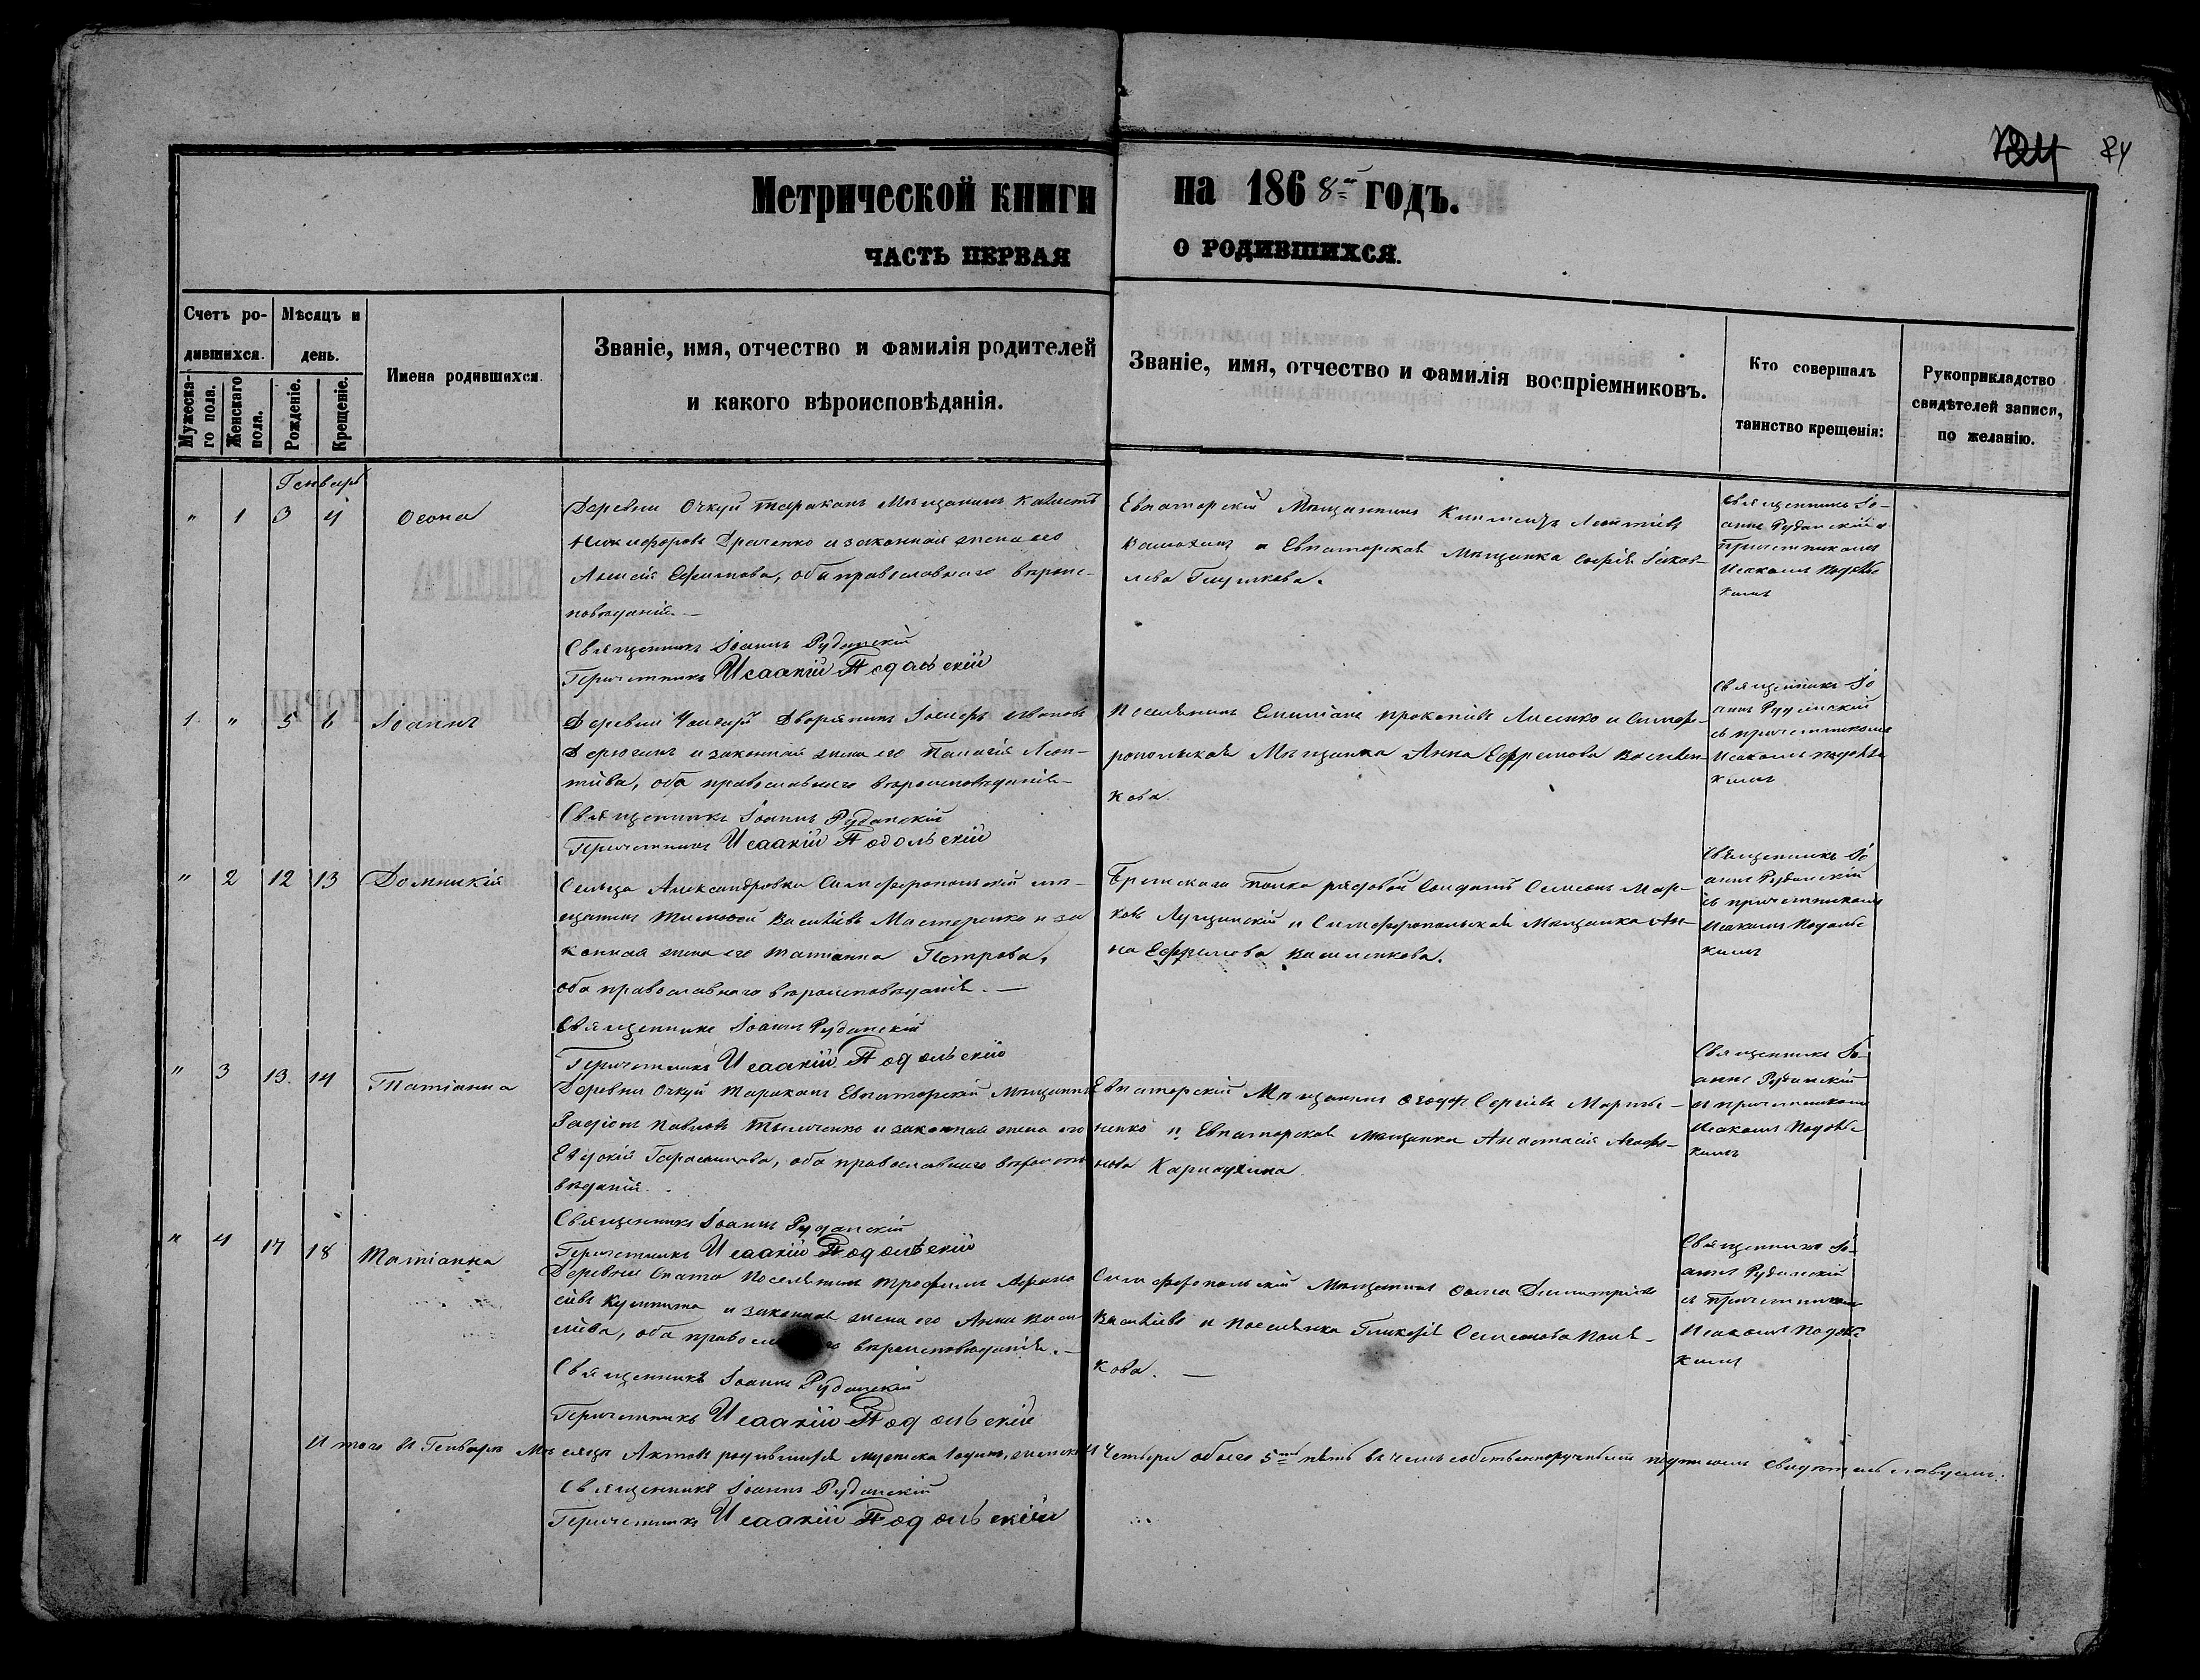 124 84
Метрической книги на 1868й годъ.
ЧАСТЬ ПЕРВАЯ О РОДИВШИХСЯ.
Счетъ родившихся.
Мѣсяцъ и день.
Имена родившихся.
Званіе, имя, отчество и фамилія родителей
и какого вѣроисповѣданія.
Званіе, имя, отчество и фамилія воспріемниковъ.
Кто совершалъ
таинство крещенія:
Рукоприкладство
свидѣтелей записи,
по желанію.
Мужеска-
го пола.
Женскаго
пола.
Рожденіе.
Крещеніе.
Генварь
" 1 3 4
Деревни Очкуй Тараканъ Мѣщанинъ
Никифоровъ и законная жена его
Ефимова, оба православнаго вѣроис-
повѣданія. —
Священникъ Іоаннъ Руданскій
Причетникъ Исаакій Подольскій
Евпаторскій Мѣщанинъ Леонтіевъ
и Евпаторская Мѣщанка Софія Іаков-
лева
Священникъ Іо-
аннъ Руданскій с
Причетникомъ
Исакомъ Подоль
кимъ
1 " 5 6 Іоаннъ
Деревни Дворянинъ Іосифъ Ивановъ
и законная жена его Леон-
тіева, оба православнаго вѣроисповѣданія
Священникъ Іоаннъ Руданскій
Причетникъ Исаакій Подольскій
Поселянинъ Емиліанъ Прокопіевъ и Симфе-
ропольская Мѣщанка Анна Ефремова Василен-
кова.
Священникъ Іо
аннъ Руданскій
съ причетникомъ
Исакомъ Подоль
кимъ
" 2 12 13 Домникія
Сельца Александровки Симферопольскій мѣ-
щанинъ Тимофей Василіевъ Мастеренко и за
конная жена его Татіанна Петрова,
оба православнаго вѣроисповѣданія. —
Священникъ Іоаннъ Руданскій
Причетникъ Исаакій Подольскій
Брестскаго полка рядовой Солдатъ Семенъ Мар-
ковъ Лущинскій и Симферопольская Мѣщанка Ан-
на Ефремова Василенкова.
Священникъ Іо
аннъ Руданскій
съ причетникомъ
Исакомъ Подоль
кимъ
" 3 13 14 Татіанна
Деревни Очкуй Тараканъ Евпаторскій Мѣщанинъ
Павловъ и законная жена его
Евдокія Герасимова, оба православнаго вѣроиспо
вѣданія.
Священникъ Іоаннъ Руданскій
Причетникъ Исаакій Подольскій
Евпаторскій Мѣщанинъ Ѳеодоръ Сергіевъ Марты-
ненко и Евпаторская мѣщанка Анастасія Агафо-
нова
Священникъ Іо-
аннъ Руданскій
съ причетникомъ
Исакомъ Подоль
кимъ
" 4 17 18 Татіанна
Деревни Спата Поселянинъ Трофимъ Афана
сіевъ и законная жена его Анна Васи
ліева, оба вѣроисповѣданія. —
Священникъ Іоаннъ Руданскій
Причетникъ Исаакій Подольскій
Симферопольскій Мѣщанинъ Ѳома Димитріевъ
Василіевъ и поселянка Гликерія Семенова Поля-
кова. —
Священникъ Іо-
аннъ Руданскій
съ причетникомъ
Исакомъ Подоль
кимъ
Итого въ Генварѣ Мѣсяцѣ Актовъ родившихся мужеска 1 одинъ, женска 4 Четыри обоего 5ть пять въ чемъ собственноручнымъ подписомъ свидѣтельствуемъ:
Священникъ Іоаннъ Руданскій
Причетникъ Исаакій Подольскій